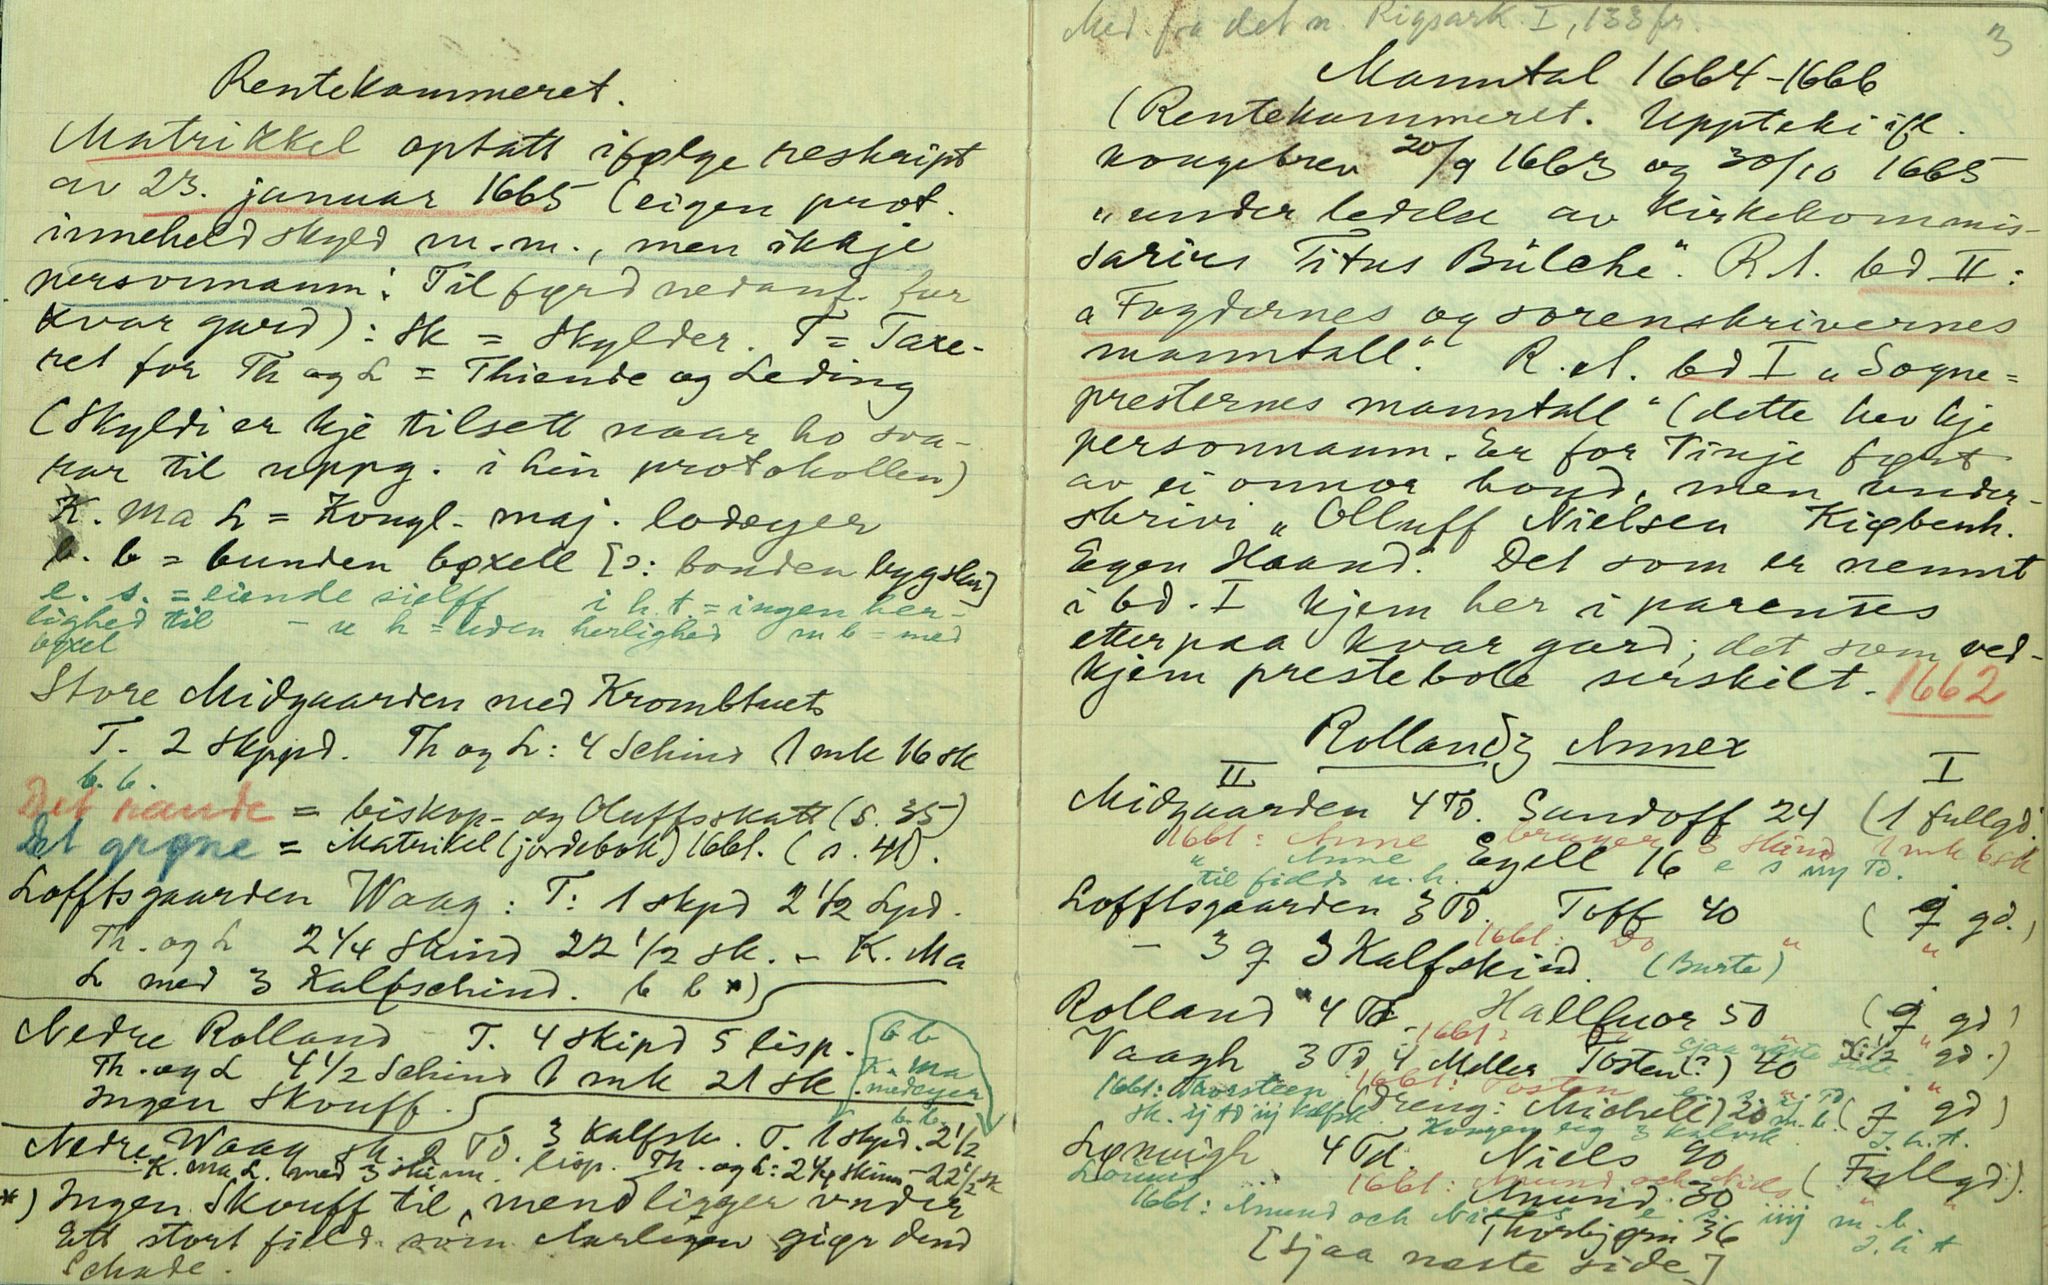 Rentekammeret.
Matrikkel optatt ifølge reskript
av 23. januar 1665 (eigen prot.
inneheld skyld m.m., men ikkje
personnamn: Tilførd nedanf. for
kvar gard): Sk = Skylder. T = Taxe-
ret for Th og L = Thiende og Leding
(Skyldi er kje tilsett naar ho sva-
rar til uppg. i hin protokollen)
K. Ma L = Kongl. maj. lodeyer
b. b = bunden bøxell [ɔ: bonden bygslar]
e. s. = eiende sielff i h. t. = ingen her-
lighed til - u h = uden herlighed m b = med
bøxel
Store Midgaarden med Krombtuets
T. 2 Skppd. Th og L: 4 Schind 1 mk 16 sk
b. b.
Det raude = biskop- og Oluffsskatt (s. 35)
Det grøne = Matrikel (jordebok) 1661. (s. 41).
Lofftsgaarden Waag: T: 1 skpd 2 1/2 Lpd.
Th. og L 2 1/4 Skind 22 1/2 sk. - K. Ma
L med 3 Kalfschind. b b *)
Nedre Rolland - T. 4 Skipd 5 lisp.
b b
Th. og L 4 1/2 Schind 1 mk 21 sk.
K. Ma
medeyer
b. b.
Ingen Skouff.
Nedre Waag sk 2 Td. 3 Kalfsk. T. 1 Skpd. 2 1/2
K. Ma L. med 3 skinn. lisp. Th. og L: 2 1/4 skinn - 22 1/2 sk
*) Ingen Skouff til, mend ligger under
Ett stort field som Aarligen giør dend
Schade.
Med. fra det n. Rigsark. I, 133 fr.
3
Manntal 1664-1666
(Rentekammeret. Uppteki ifl.
kongebrev 20/9 1663 og 30/10 1665
"under ledelse av Kirkekommis-
sarius Titus Bülche". R.A. bd II:
"Fogdernes og sorenskrivernes
manntall". R.A. bd I "Sogne-
presternes manntall" (dette hev kje
personnamn. Er for Vinje ført
av ei onnor hond, men under-
skrivi "Olluff Nielsen Kiøbenh.
Egen Haand". Det som er nemnt
i bd. I kjem her i parentes
etterpaa kvar gard; det som ved-
kjem prestebole serskilt. 1662
Rollandz Annex
II I
Midgaarden 4 Td. Sundoff 24 (1 fullgd.
1661: Anne bruger 3 skind 1 mk 6 sk
" Anne Egell 16 e s iiij Td.
til fields u. h.
Lofftsgaarden 3 Td. Toff 40 (j gd.)
1661: Do " "
- 3 q 3 Kalfskind. (Burte)
Rolland 4 Td. Hallfuor 50 (j gd)
1661: sjaa næste side
Vaagh 3 Td 4 Meller Tosten (?) 40 1/2 gd.)
1661: Torsteen 1661: Tosten
(dreng: Michell) 20 (j gd)
sk. iij td iij kalfsk. Kongen eig 3 kalvsk. I. h. t.
Lønnigh 4 Td. Niels 90 (Fullgd).
Lönnig 1661: Amund och Niels
Amund 30
1661: Amund och Niels e. s. iiij m. b.
Thorbjørn 36 I. h t
[sjaa næste side]